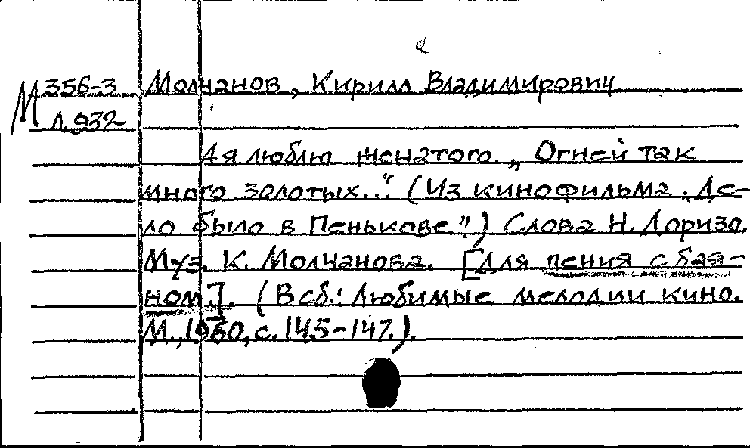 М 356-3 Молчанов, Кирилл Владимирович
Л.932
А я люблю женатого. „Огней так
много золотых..." (Из кинофильма „Де-
ло было в Пенькове.") Слова Н. Доризо.
Муз. К. Молчанова. [Для пения с бая-
ном.]. (В сб.: Любимые мелодии кино.
М., 1960, с. 145-147.).